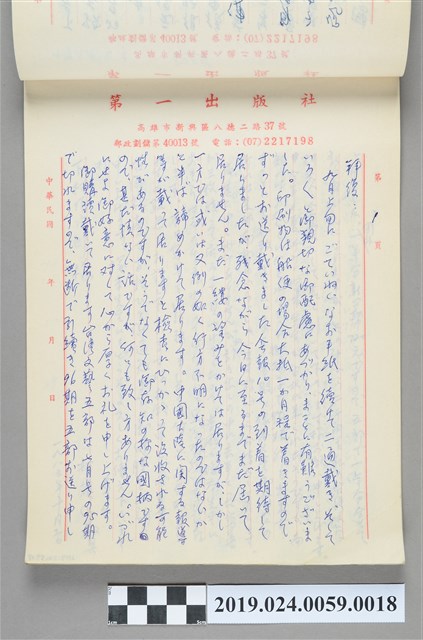 第一出版社
高雄市新興區八德二路37號
郵政劃儲第40013號 電話：(07)2217198
第 1 頁
拝復：
九月上旬にごていねいなお手紙を続けて二通戴き、そして
いろ〱御親切な御配慮にあづかりまことに有難うございま
した。印刷物は船便の場合大抵一か月程で着きますので
ずっとお送り戴きました会報10号の到着を期待して
居りましたが残念ながら今日に至るまでまだ届いて
居りません。まだ一縷の望みをかけては居りますがしかし
一方では或いは又例の如く行方不明になったのではないか
と半ば諦めかけて居ります。中国大陸に関する報導
等が載って居りますと検査にひっかゝって没収される可能
性があるのですがそうでなくても御存知の様な国柄です
ので、甚だ情ない話ですが何とも致し方ありません。いづれ
にせよ御好意に対して心から厚くお礼を申し上げます。
御購読戴いて居ります台湾文藝五部は七月号の95期
で切れますので、無断で引続き96期を五部お送り申し
中華民國 年 月 日
2019.024.0059.0018